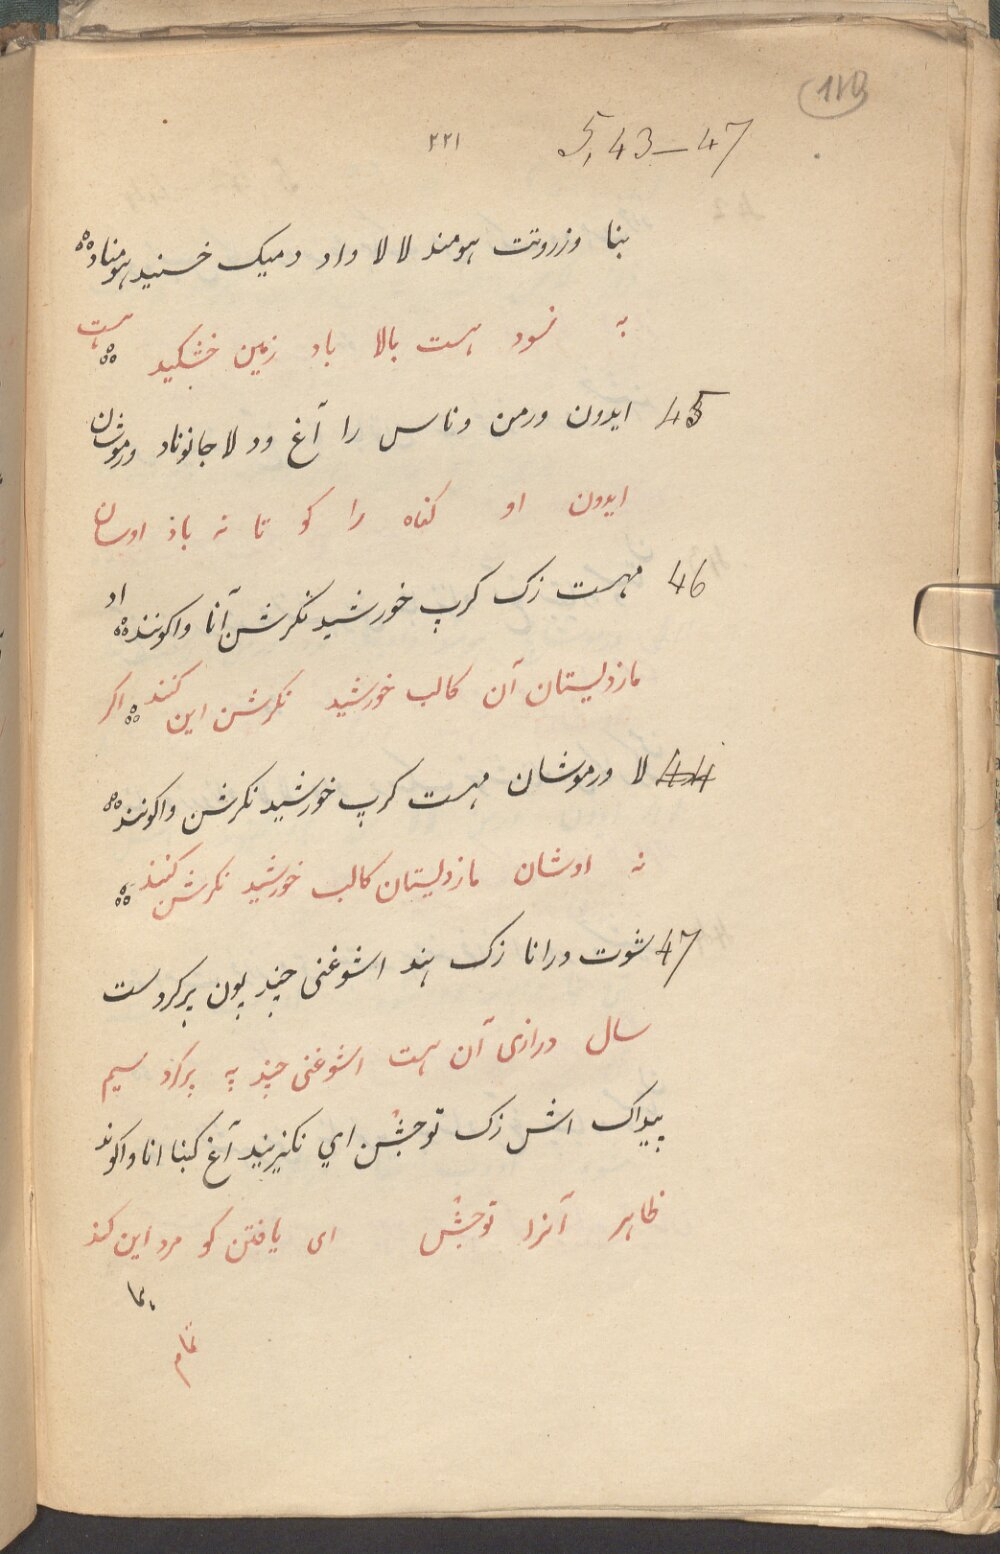 119
۲۲۱ 5,43-47
بنا وزروتت هومند لا لا واد دمیک خسنید هومناد
به نسود هست بالا باد زمین خشکید هست
45 ایدون ورمن وناس را آغ ود لا جانوناد ورموشان
ایدون او کناه را کو تا نه باذ اوشان
46 مهست زک کرپ خورشید نکرشن آنا واکونند اد
مازدیستان آن کالب خورشید نکرشن این کنند اکر
44 لا ورموشان مهست کرپ خورشید نکرشن واکونند
نه اوشان مازدیستان کالب خورشید نکرشن کنند
47 شوت درانا زک هند اشوغنی چند پون پرکردست
سال درازی آن هست اشوغنی چند په پرکرد سیم
پیداک اش زک توجشن ای نکیزیند آغ کبنا انا واکوند
ظاهر آنرا توجش ای یافتن کو مرد این کند
تمام